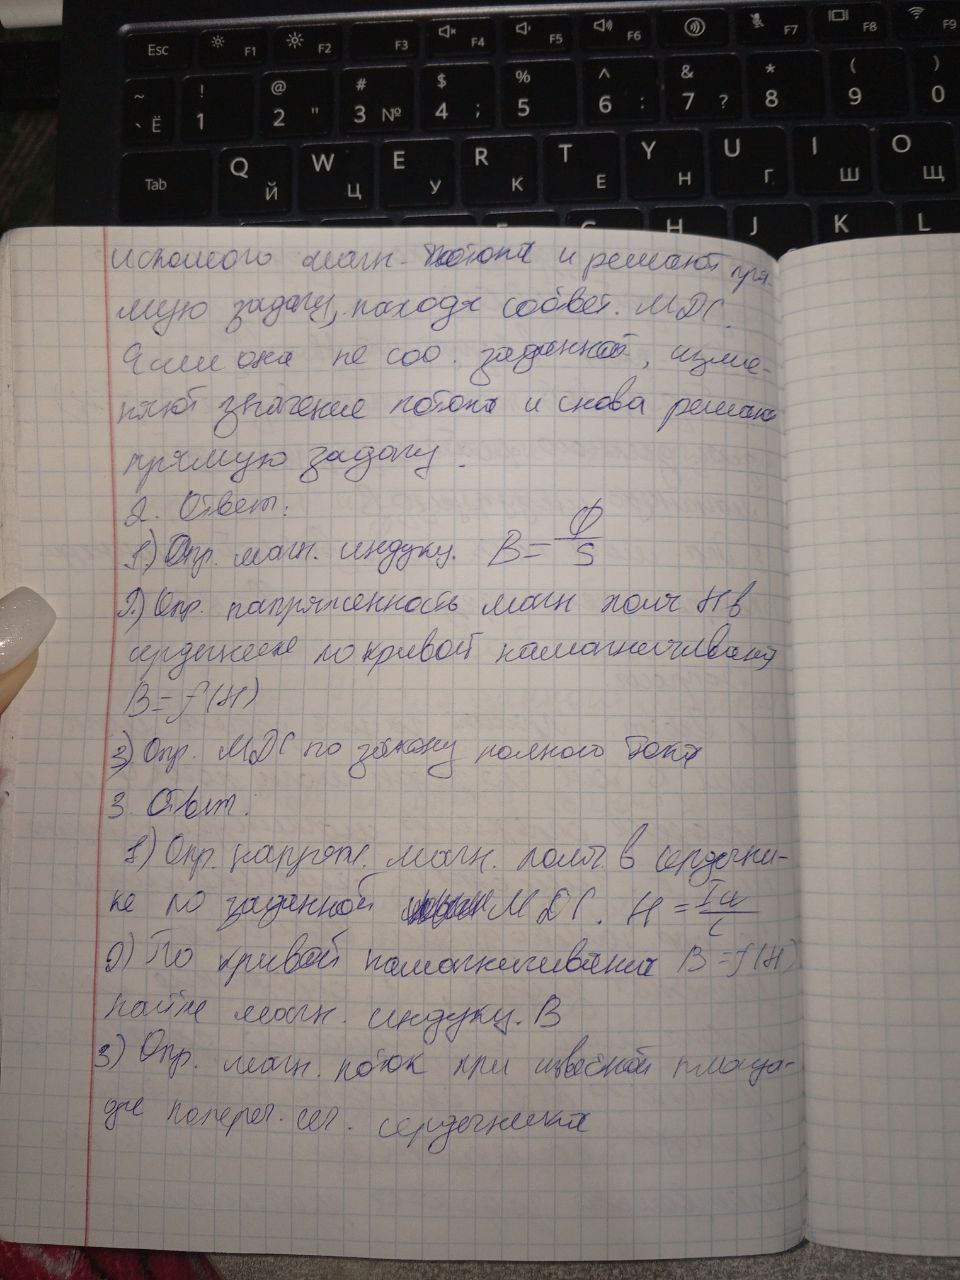 Esc F1 F2 F3 F4 F5 F6 F7 F8 F9
~ ! @ # $ % ^ & * ( )
` Ё 1 2 " 3 № 4 ; 5 6 : 7 ? 8 9 0
Tab Q Й W Ц E У R К T Е Y Н U Г I Ш O Щ
H J K L
искомого магн. потока и решают пря-
мую задачу, находя соответ. МДС.
Если она не соо. заданной, изме-
няют значение потока и снова решают
прямую задачу.
2. Ответ:
1) Опр. магн. индукц. B = Ф/S
2) Опр. напряженность магн поля H в
сердечнике по кривой намагничивания
B = f(H)
3) Опр. МДС по закону полного тока
3. Ответ:
1) Опр. напряж. магн. поля в сердечни-
ке по заданной МДС. H = Iω/l
2) По кривой намагничивания B = f(H)
найти магн. индукц. B
3) Опр. магн. поток при известной площа-
ди попереч. сеч. сердечника